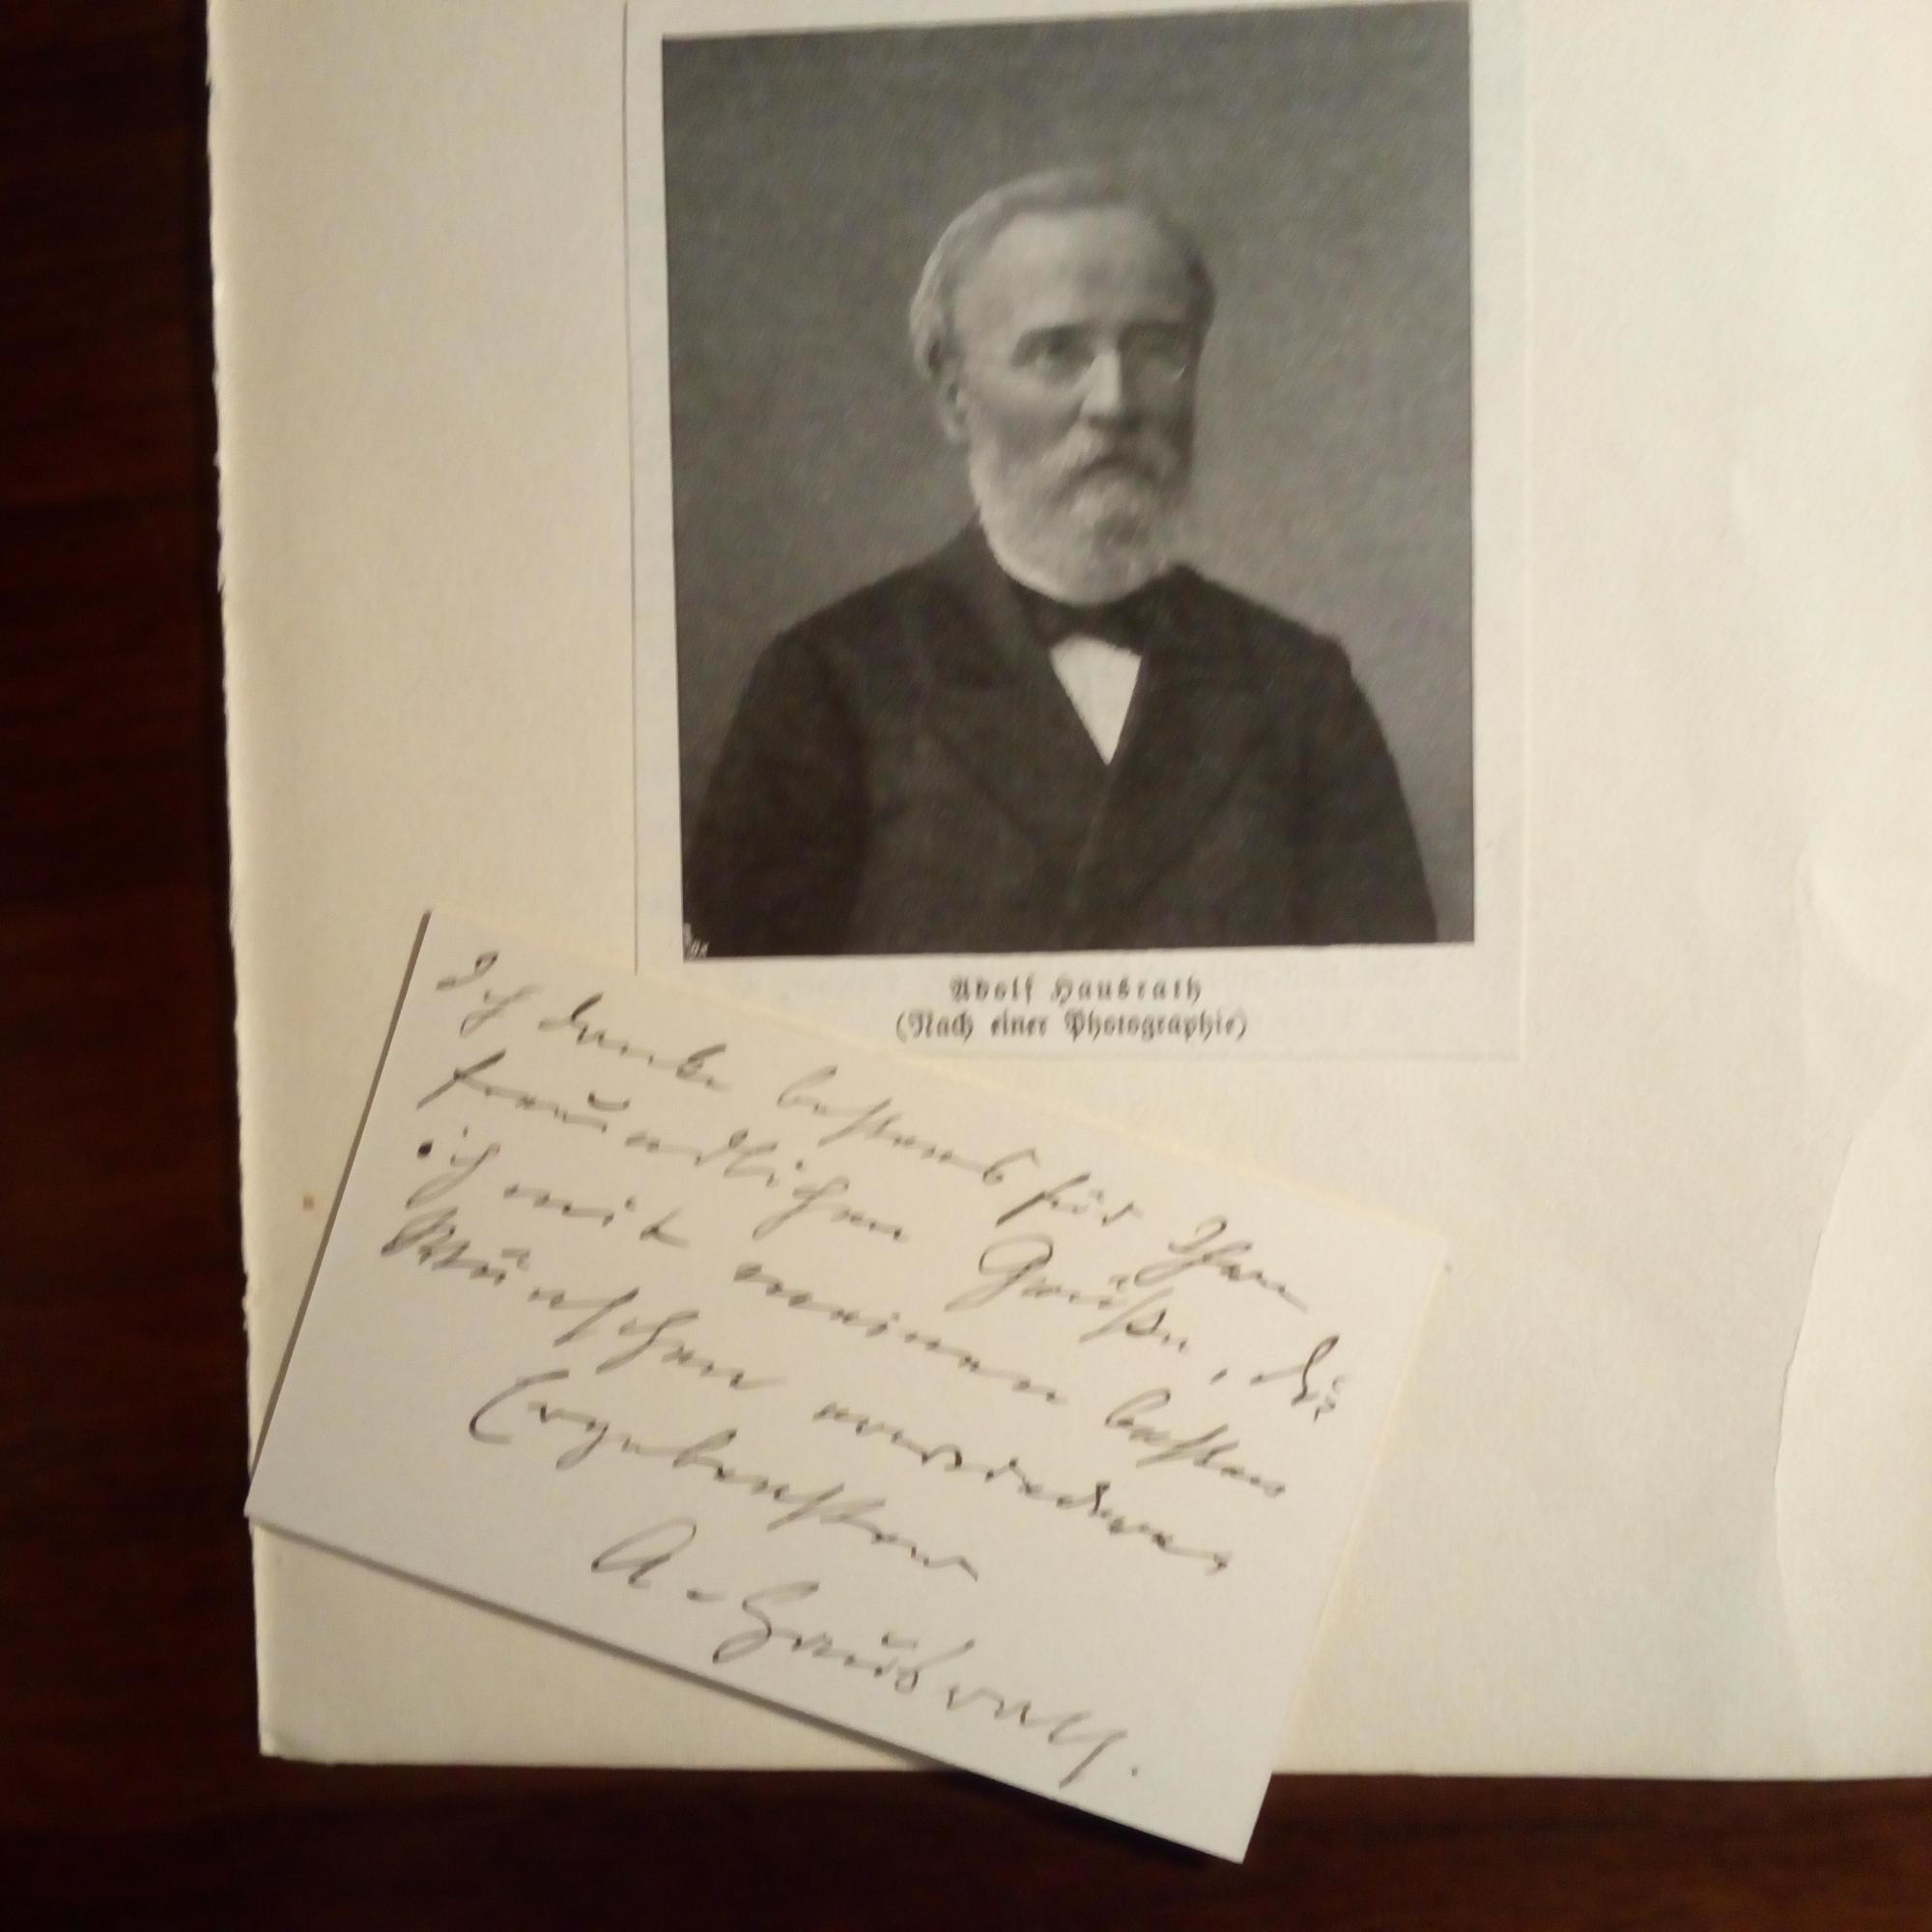 Adolf Hausrath
(Nach einer Photographie)
Ich danke bestens für Ihre
freundlichen Grüße, die
ich mit meinen besten
Wünschen erwiedere
Ergebenster
A. Hausrath.